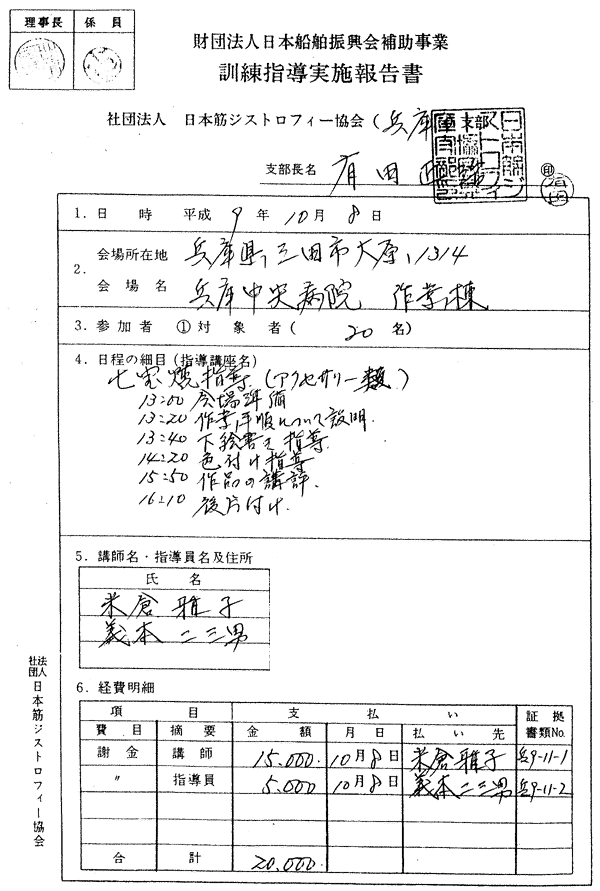 理事長 係員
財団法人日本船舶振興会補助事業
訓練指導実施報告書
社団法人 日本筋ジストロフィー協会(兵庫
支部長名 有田
印
1.日 時 平成 9 年 10 月 8 日
2.会場所在地 兵庫県三田市大原1314
会 場 名 兵庫中央病院 作業棟
3.参加者 ①対 象 者( 20 名)
4.日程の細目(指導講座名)
七宝焼指導(アクセサリー類)
13:00 会場準備
13:20 作業手順について説明.
13:40 下絵書き指導.
14:20 色付け指導
15:50 作品の講評.
16:10 後片付け.
5.講師名・指導員名及住所
氏 名
米倉 雅子
義本 二三男
6.経費明細
項 目 支 払 い 証 拠
費 目 摘 要 金 額 月 日 払 い 先 書類No.
謝 金 講 師 15,000. 10月8日 米倉雅子 兵9-11-1
〃 指導員 5,000 10月8日 義本二三男 兵9-11-2
合 計 20,000.
社団法人 日本筋ジストロフィー協会